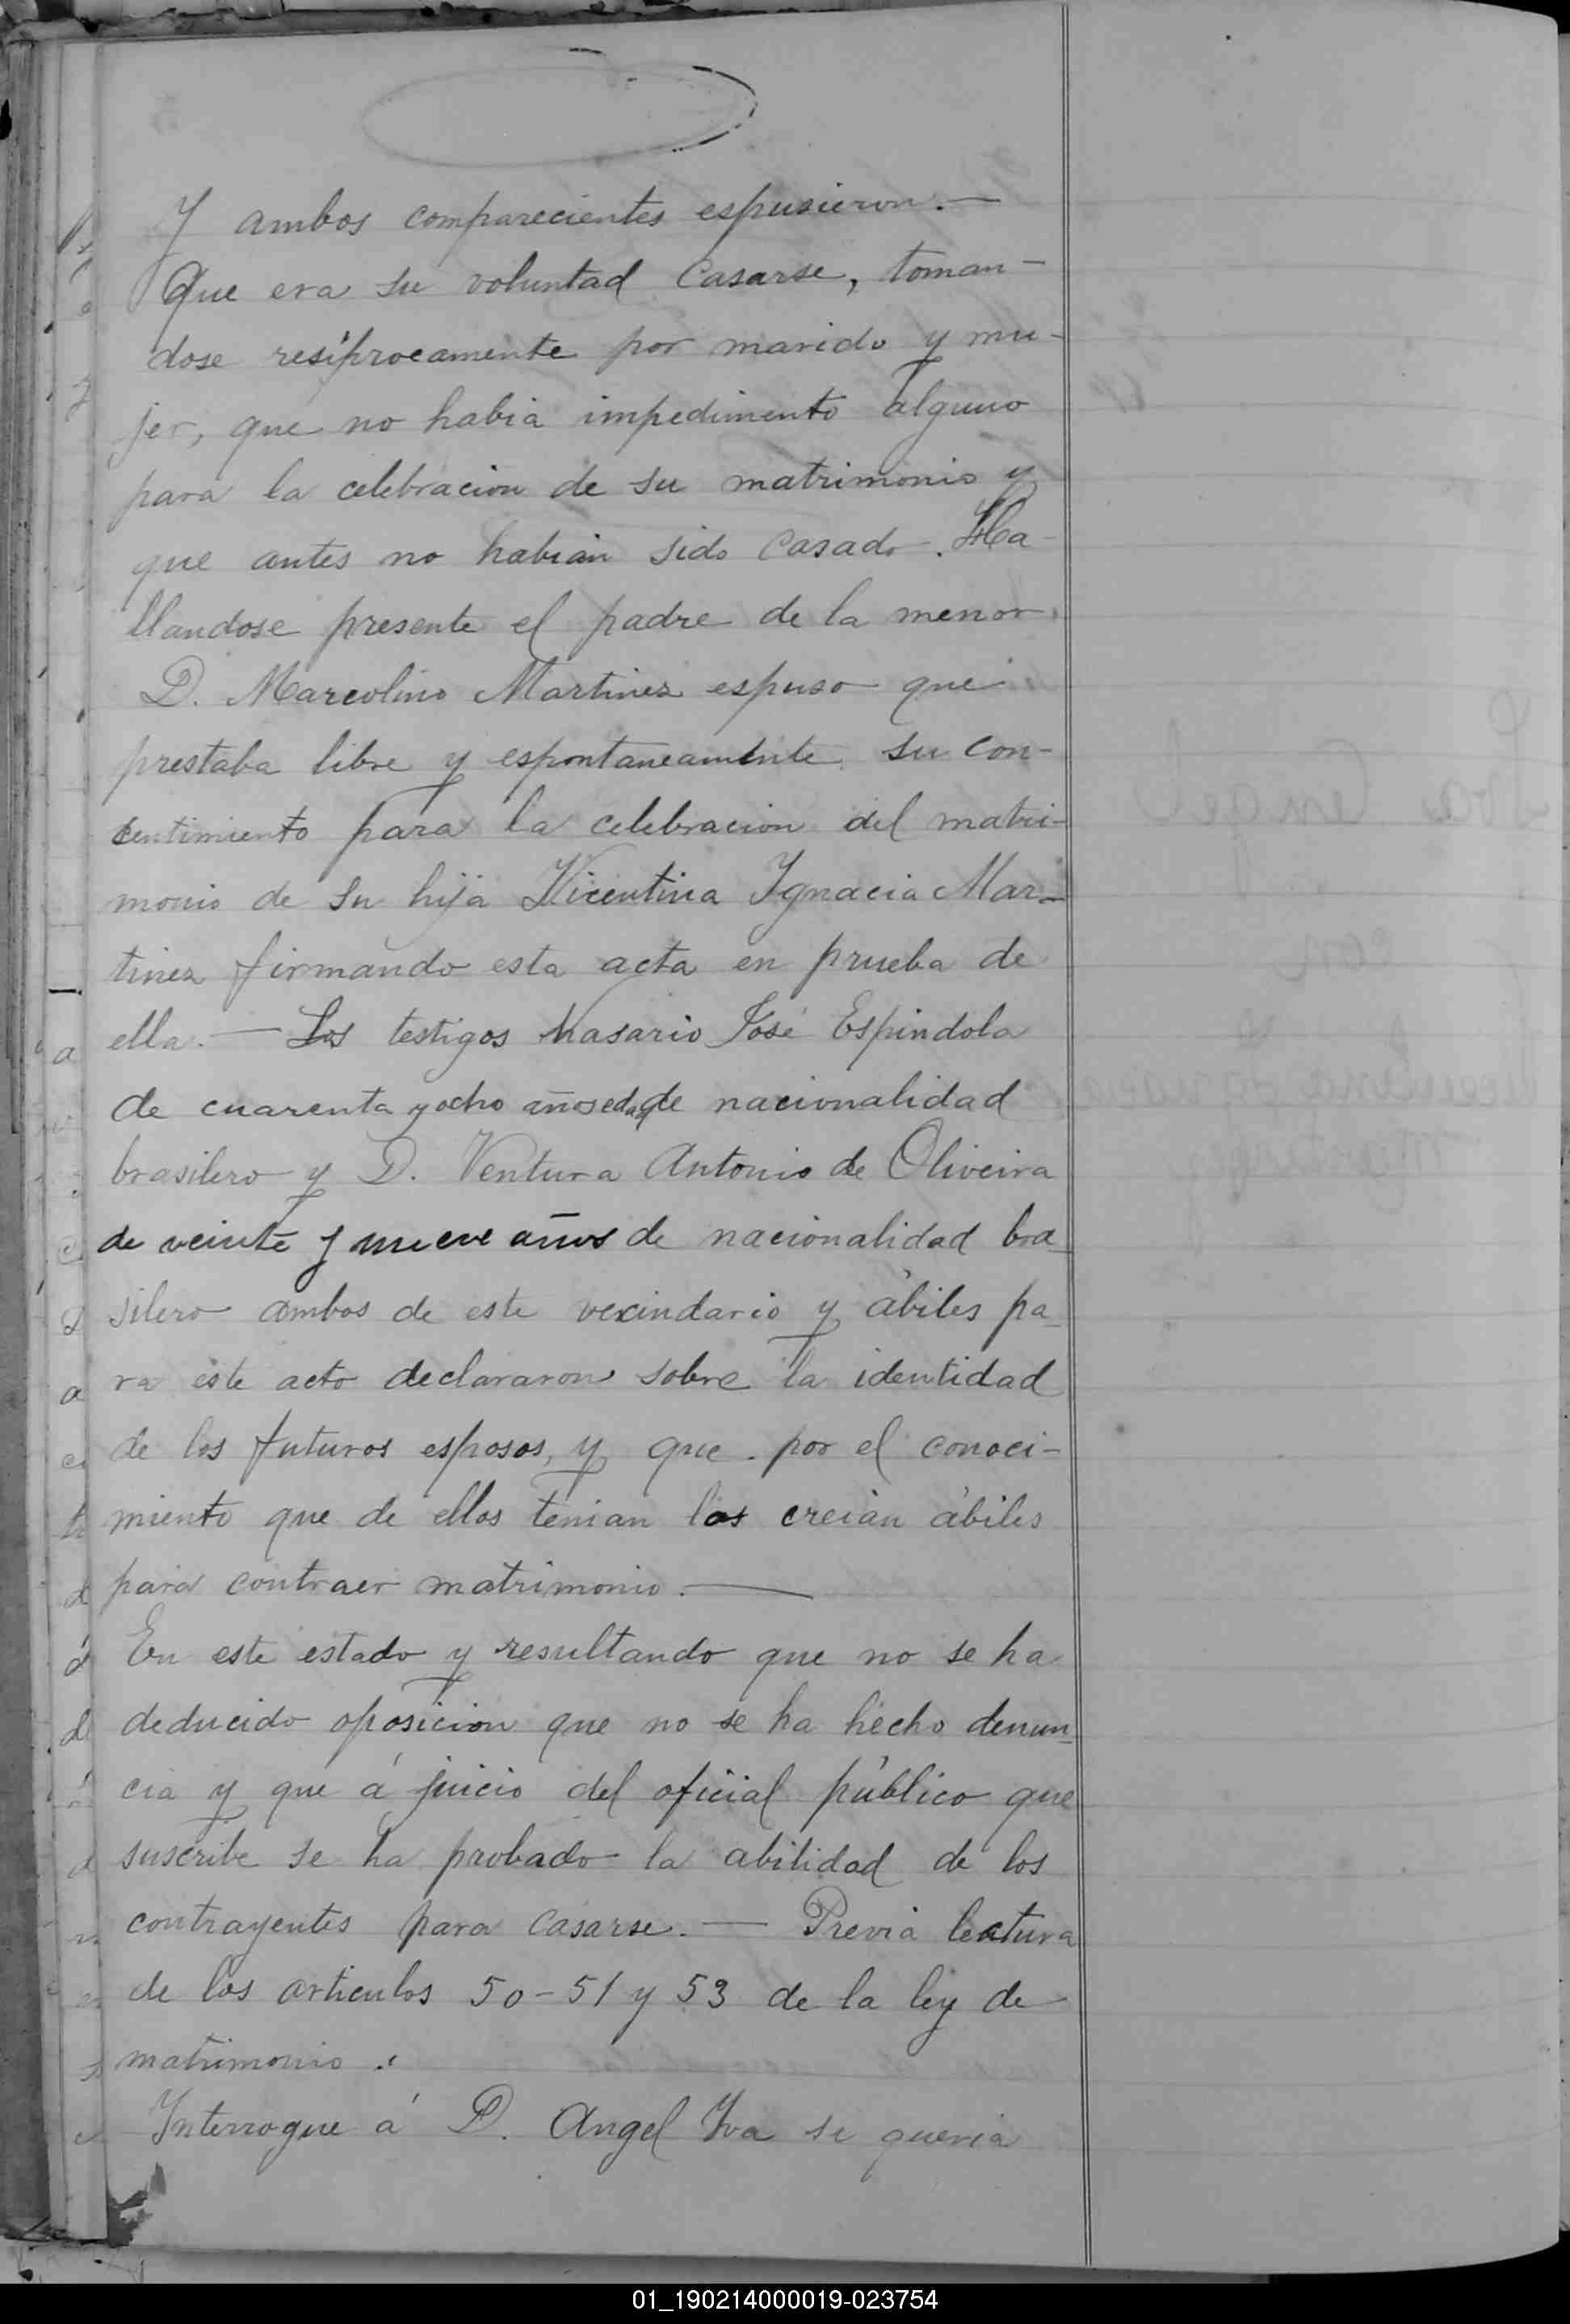 Y ambos comparecientes espusieron.—
Que era su voluntad Casarse, toman-
dose resiprocamente por marido y mu-
jer, que no habia impedimento alguno
para la celebracion de su matrimonio y
que antes no habian sido Casado. Ha-
llandose presente el padre de la menor
D. Marcolino Martinez espuso que
prestaba libre y espontaneamente su con-
sentimiento para la celebracion del matri-
monio de su hija Vicentina Ignacia Mar-
tinez firmando esta acta en prueba de
ella.— Los testigos Nasario José Espindola
de cuarenta y ocho años edad de nacionalidad
brasilero y D. Ventura Antonio de Oliveira
de veinte y nueve años de nacionalidad bra-
silero ambos de este vecindario y ábiles pa-
ra este acto declararon sobre la identidad
de los futuros esposos, y que por el conoci-
miento que de ellos tenian los creian ábiles
para contraer matrimonio.—
En este estado y resultando que no se ha
deducido oposicion que no se ha hecho denun-
cia y que á juicio del oficial público que
suscribe se ha probado la abilidad de los
contrayentes para casarse.— Previa lectura
de los articulos 50-51 y 53 de la ley de
matrimonio.
Interrogue á D. Angel Iva se queria
01_190214000019-023754